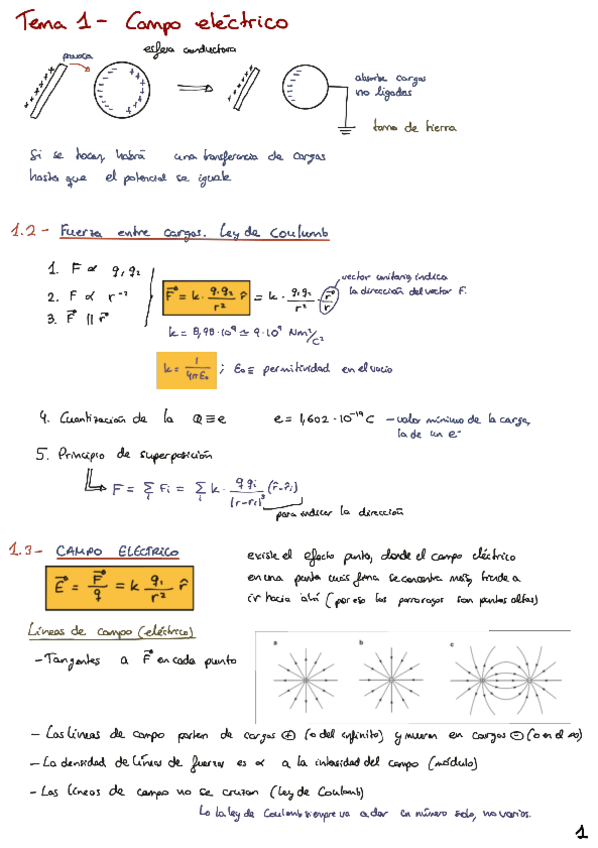 Tema 1 - Campo eléctrico
esfera conductora
provoca
absorbe cargas
no ligadas
toma de tierra
Si se tocan, habrá una transferencia de cargas
hasta que el potencial se iguale
1.2 - Fuerza entre cargas. Ley de Coulomb
1. F ∝ q₁q₂
2. F ∝ r⁻²
3. F⃗ ∥ r⃗
F⃗ = k · q₁q₂/r² r̂ = k · q₁q₂/r² · r⃗/r
vector unitario, indica
la dirección del vector F.
k = 8,98·10⁹ ≃ 9·10⁹ Nm²/C²
k = 1/4πε₀ ; ε₀ ≡ permitividad en el vacío
4. Cuantización de la Q ≡ e e = 1,602 · 10⁻¹⁹ C - valor mínimo de la carga,
la de un e⁻
5. Principio de superposición
F = Σᵢ Fᵢ = Σᵢ k · q qᵢ/|r-rᵢ|³ (r̄-r̄ᵢ)
para indicar la dirección
1.3 - CAMPO ELÉCTRICO
E⃗ = F⃗/q = k q₁/r² r̂
existe el efecto punta, donde el campo eléctrico
en una punta más fina se concentra más, tiende a
ir hacia ahí (por eso los pararrayos son puntas altas)
Líneas de campo (eléctrico)
- Tangentes a F⃗ en cada punto
a b c
- Las líneas de campo parten de cargas ⊕ (o del infinito) y mueren en cargas ⊖ (o en el ∞)
- La densidad de líneas de fuerza es ∝ a la intensidad del campo (módulo)
- Las líneas de campo no se cruzan (ley de Coulomb)
La ley de Coulomb siempre va a dar un número solo, no varios.
1